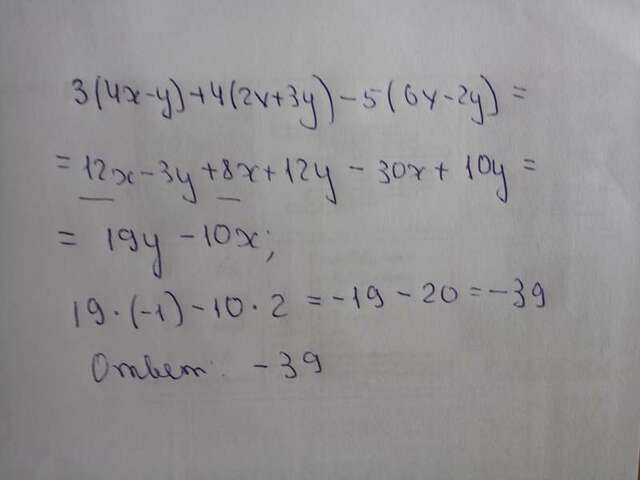 3(4x-y)+4(2x+3y)-5(6x-2y)=
=12x-3y+8x+12y-30x+10y=
=19y-10x;
19·(-1)-10·2=-19-20=-39
Ответ: -39